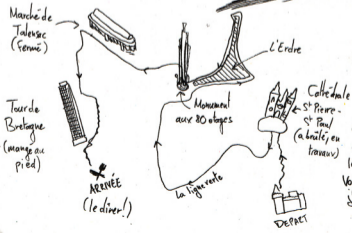 Marché de
Talensac
(fermé)
L'Erdre
Monument
aux 50 otages
Cathédrale
St Pierre-
St Paul
(a brûlé, en
travaux)
Tour de
Bretagne
(mange au
pied)
la ligne verte
ARRIVÉE
(le dire!)
DÉPART